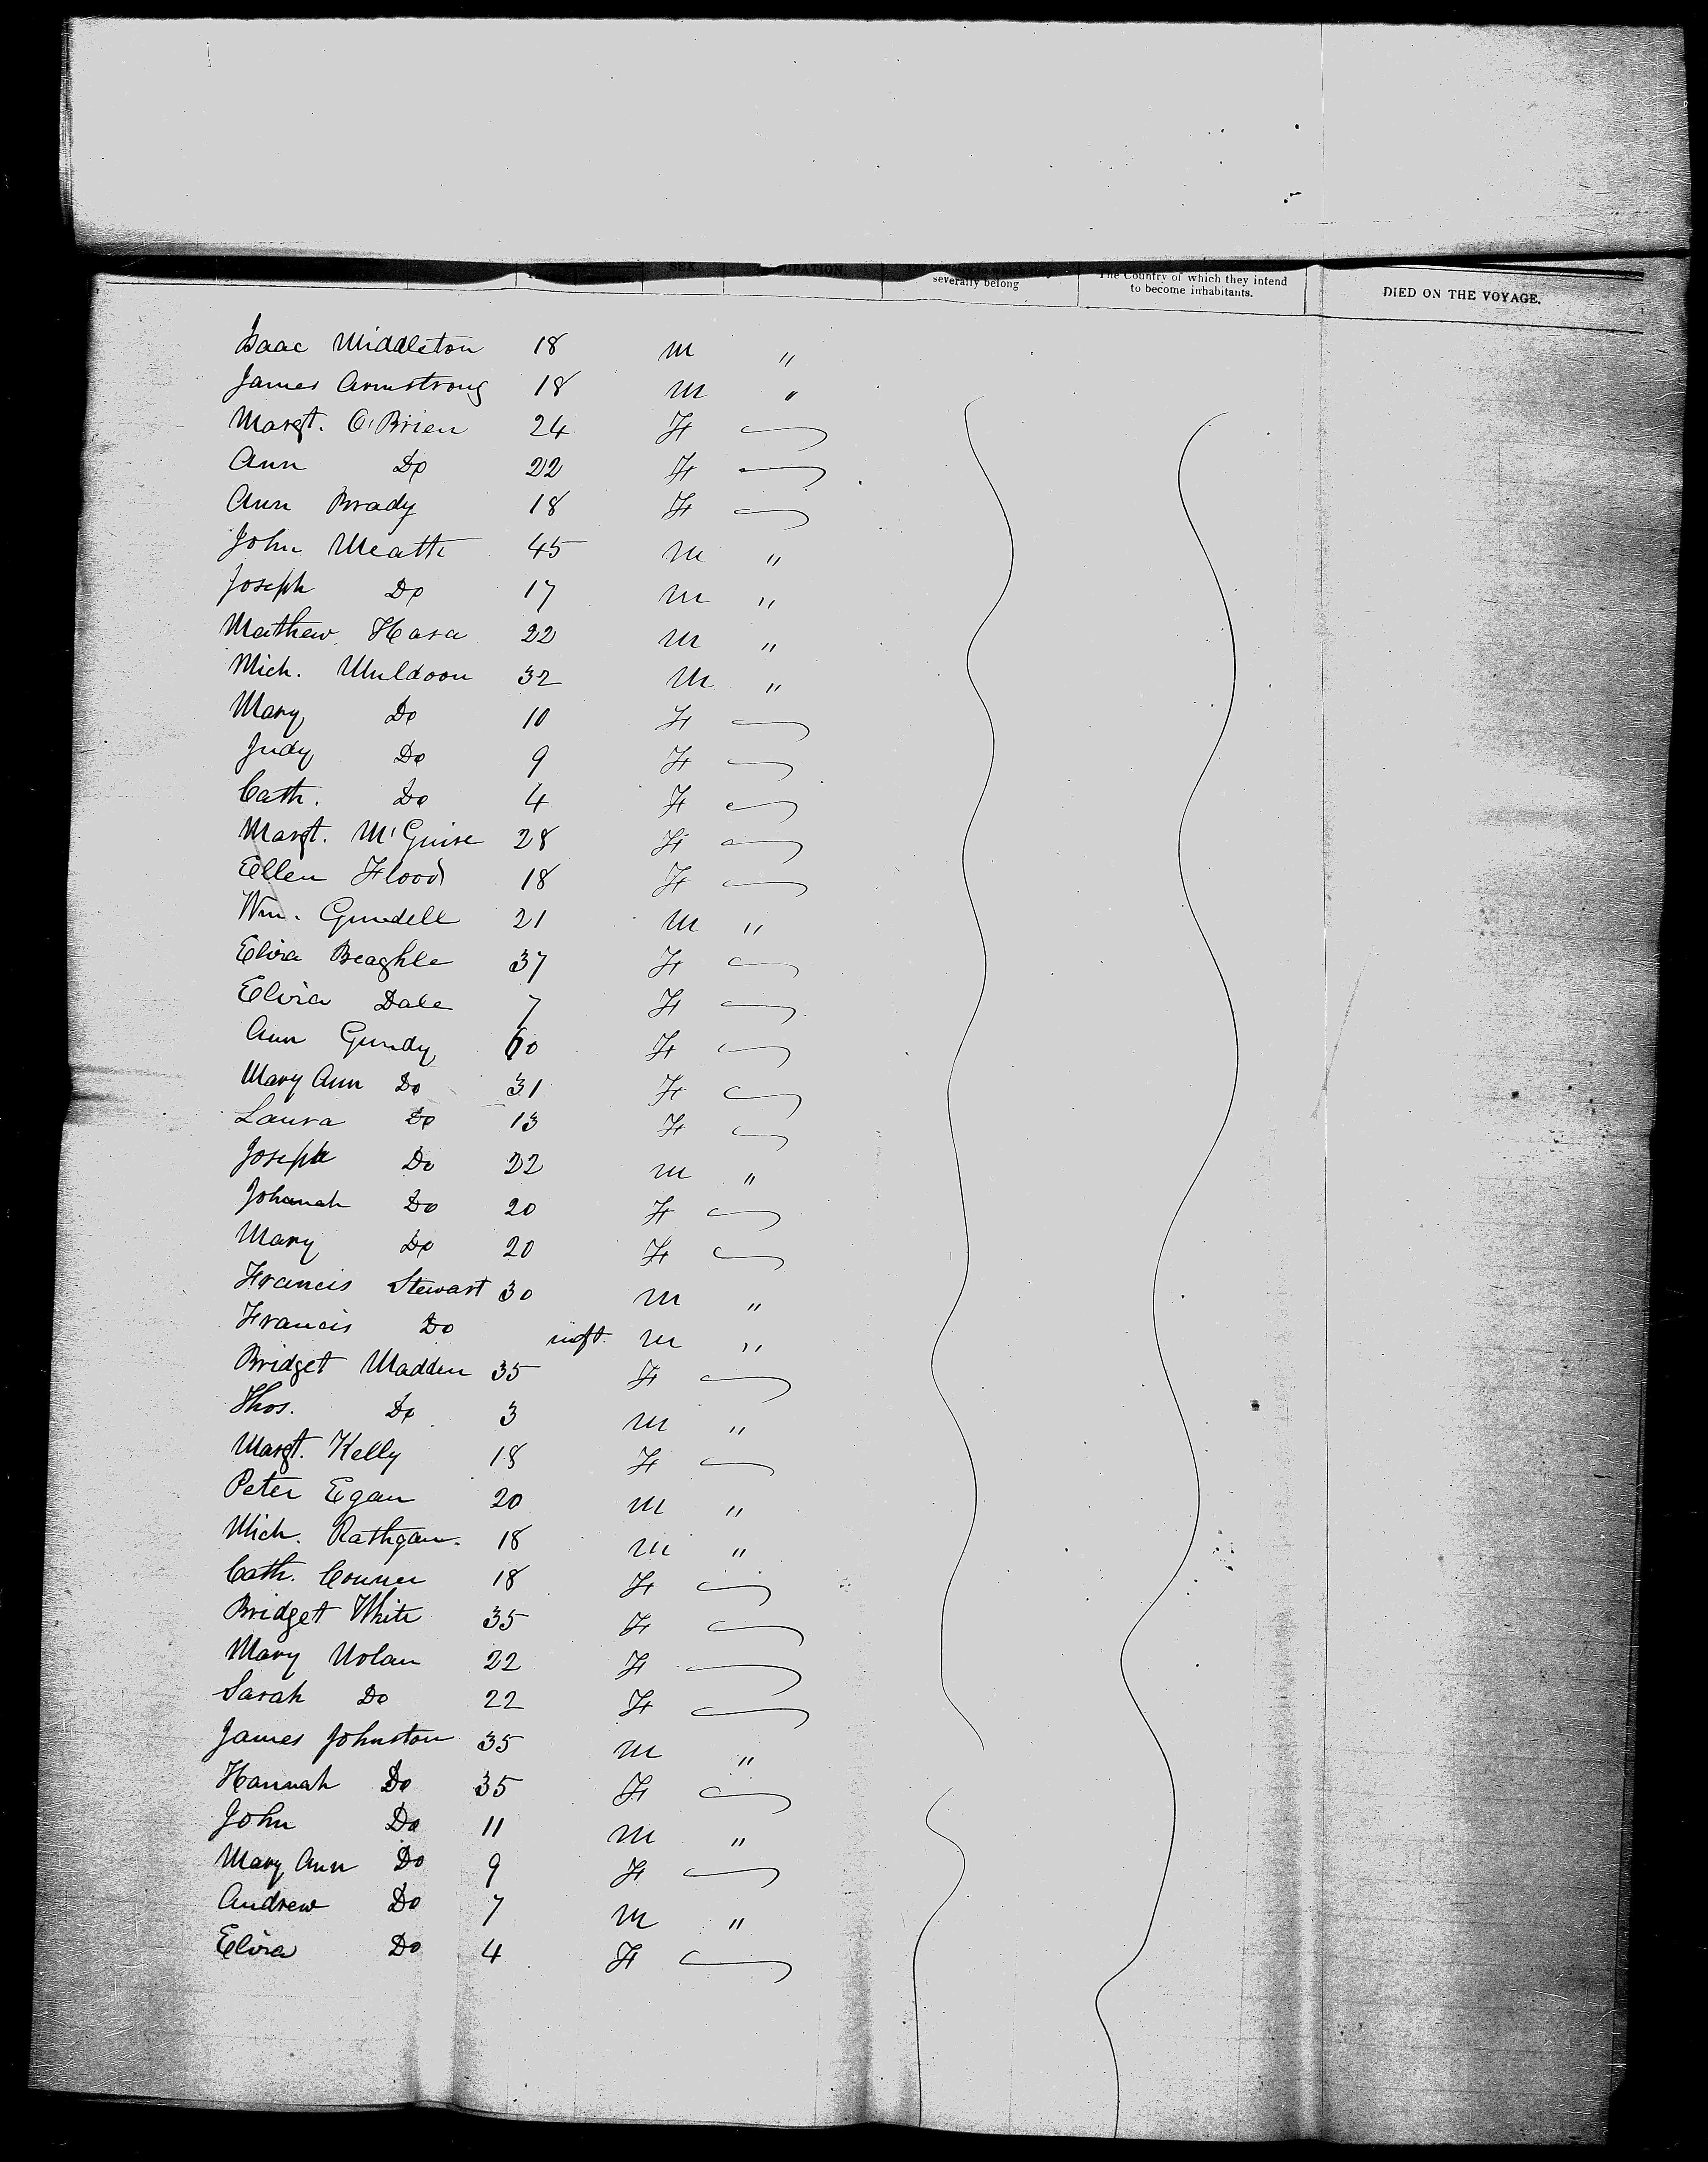 SEX. OCCUPATION. The Country to which they severally belong The Country of which they intend to become inhabitants. DIED ON THE VOYAGE.
Isaac Middleton 18 M "
James Armstrong 18 M "
Margt. O'Brien 24 F
Ann Do 22 F
Ann Brady 18 F
John Meath 45 M "
Joseph Do 17 M "
Mathew Hara 22 M "
Mich. Muldoon 32 M "
Mary Do 10 F
Judy Do 9 F
Cath. Do 4 F
Margt. McGuire 28 F
Ellen Flood 18 F
Wm. Gundell 21 M "
Eliza Beaghle 37 F
Eliza Dale 7 F
Ann Gundy 60 F
Mary Ann Do 31 F
Laura Do 13 F
Joseph Do 22 M "
Johanah Do 20 F
Mary Do 20 F
Francis Stewart 30 M "
Francis Do inft. M "
Bridget Madden 35 F
Thos. Do 3 M "
Margt. Kelly 18 F
Peter Egan 20 M "
Mich. Rathgan. 18 M "
Cath. Conner 18 F
Bridget White 35 F
Mary Nolan 22 F
Sarah Do 22 F
James Johnston 35 M "
Hannah Do 35 F
John Do 11 M "
Mary Ann Do 9 F
Andrew Do 7 M "
Eliza Do 4 F